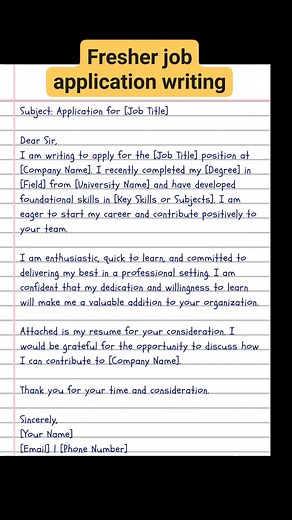 Fresher job
application writing
Subject: Application for [Job Title]
Dear Sir,
I am writing to apply for the [Job Title] position at
[Company Name]. I recently completed my [Degree] in
[Field] from [University Name] and have developed
foundational skills in [Key Skills or Subjects]. I am
eager to start my career and contribute positively to
your team.
I am enthusiastic, quick to learn, and committed to
delivering my best in a professional setting. I am
confident that my dedication and willingness to learn
will make me a valuable addition to your organization.
Attached is my resume for your consideration. I
would be grateful for the opportunity to discuss how
I can contribute to [Company Name].
Thank you for your time and consideration.
Sincerely,
[Your Name]
[Email] | [Phone Number]